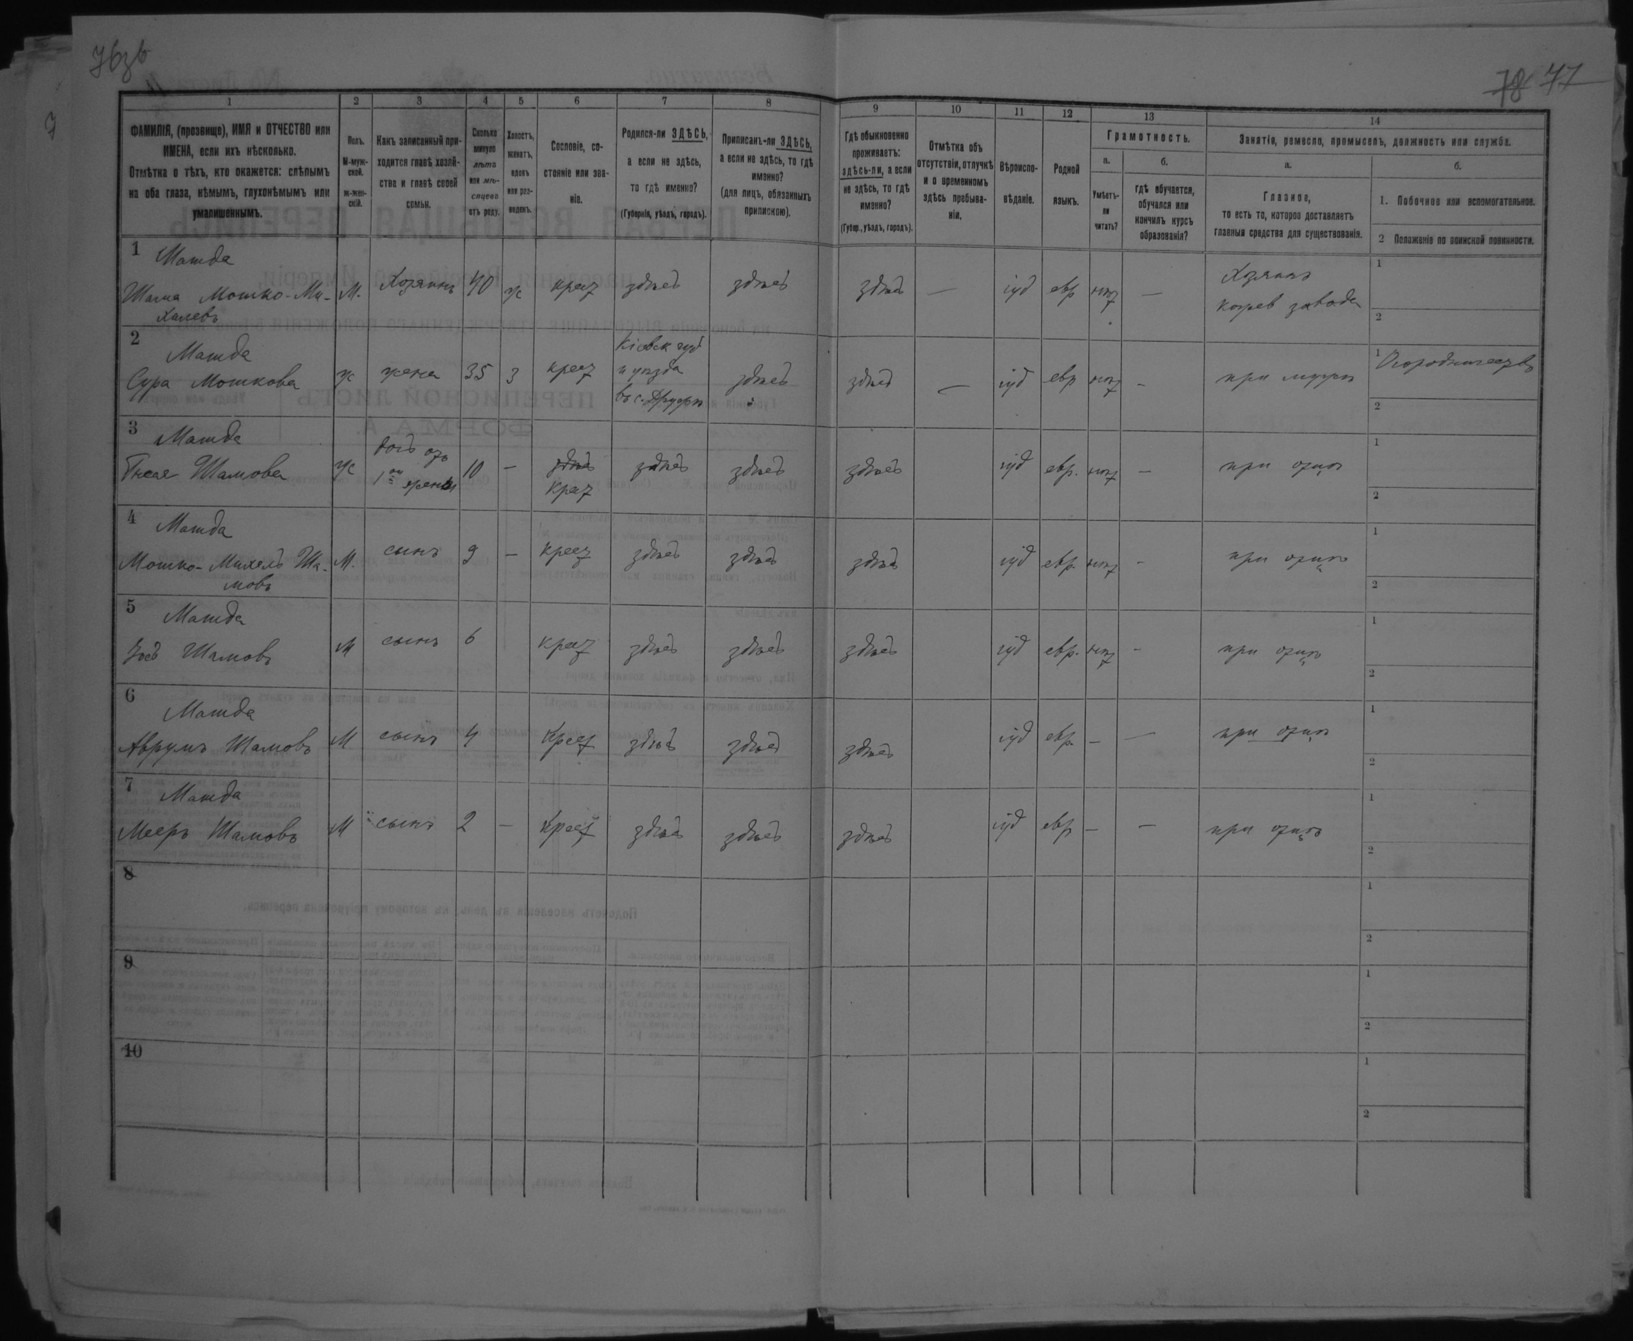 76зв
78 77
1 2 3 4 5 6 7 8 9 10 11 12 13 14
ФАМИЛІЯ, (прозвище), ИМЯ и ОТЧЕСТВО или
ИМЕНА, если ихъ нѣсколько.
Отмѣтка о тѣхъ, кто окажется: слѣпымъ
на оба глаза, нѣмымъ, глухонѣмымъ или
умалишеннымъ.
Полъ.
М-муж-
ской.
ж-жен-
скій.
Какъ записанный при-
ходится главѣ хозяй-
ства и главѣ своей
семьи.
Сколько
минуло
лѣтъ
или мѣ-
сяцевъ
отъ роду.
Холостъ,
женатъ,
вдовъ
или раз-
веденъ.
Сословіе, со-
стояніе или зва-
ніе.
Родился-ли ЗДѢСЬ,
а если не здѣсь,
то гдѣ именно?
(Губернія, уѣздъ, городъ).
Приписанъ-ли ЗДѢСЬ,
а если не здѣсь, то гдѣ
именно?
(для лицъ, обязанныхъ
припискою).
Гдѣ обыкновенно
проживаетъ:
здѣсь-ли, а если
не здѣсь, то гдѣ
именно?
(Губер., уѣздъ, городъ).
Отмѣтка объ
отсутствіи, отлучкѣ
и о временномъ
здѣсь пребыва-
ніи.
Вѣроиспо-
вѣданіе.
Родной
языкъ.
Грамотность.
а.
Умѣетъ-
ли
читать?
б.
гдѣ обучается,
обучался или
кончилъ курсъ
образованія?
Занятіе, ремесло, промыселъ, должность или служба.
а.
Главное,
то есть то, которое доставляетъ
главныя средства для существованія.
б.
1. Побочное или вспомогательное.
2 Положеніе по воинской повинности.
1 Матда
Шама Мошко-Ми-
халевъ
М. Хозяинъ 40 ж крест здѣсь здѣсь здѣсь — іуд евр нѣт — Хозяинъ
кожев завода
1
2
2 Матда
Сура Мошкова ж жена 35 З крест Кіевск губ
и уѣзда
въ с.
здѣсь здѣсь — іуд евр нѣт - при мужѣ
1 Огородничество
2
3 Матда
Шамова ж дочь отъ
1ой жены
10 — здѣсь
крест
здѣсь здѣсь здѣсь іуд евр. нѣт — при отцѣ
1
2
4 Матда
Мошко-Михель Ша-
мовъ
М. сынъ 9 — крест здѣсь здѣсь здѣсь іуд евр. нѣт - при отцѣ
1
2
5 Матда
Шамовъ М сынъ 6 крест здѣсь здѣсь здѣсь іуд евр. нѣт - при отцѣ
1
2
6 Матда
Аврумъ Шамовъ М сынъ 4 крест здѣсь здѣсь здѣсь іуд евр. — — при отцѣ
1
2
7 Матда
Мееръ Шамовъ М сынъ 2 — крест здѣсь здѣсь здѣсь іуд евр — — при отцѣ
1
2
8
1
2
9
1
2
10
1
2